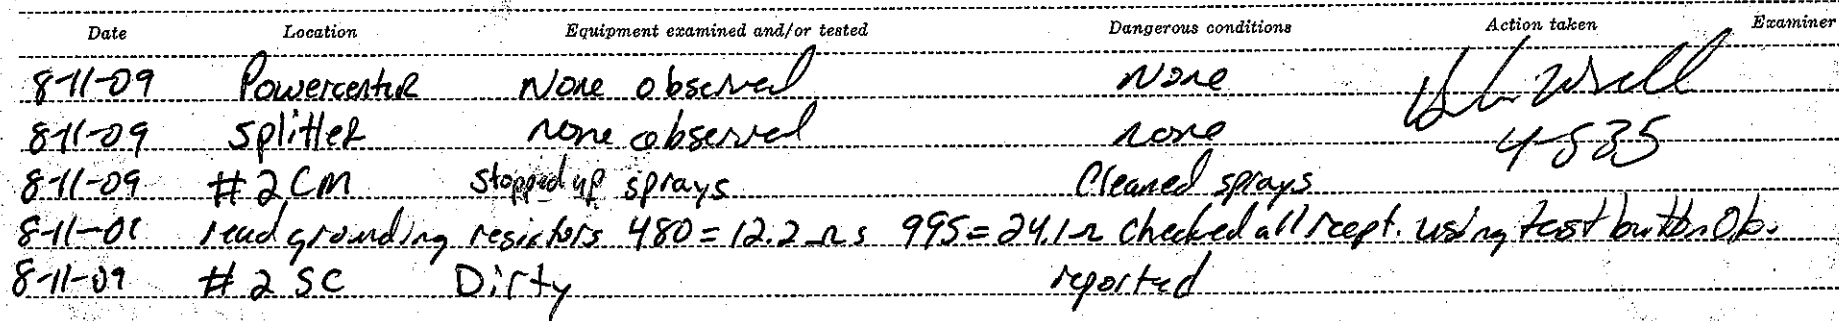 Date Location Equipment examined and/or tested Dangerous conditions Action taken Examiner
8-11-09 Powercenter None observed None
8-11-09 Splitter none observed none 4-535
8-11-09 #2 CM Stopped up sprays Cleaned sprays
8-11-09 read grounding resistors 480=12.2 Ωs 995=24.1Ω Checked all recept. using test button Ok.
8-11-09 #2 SC Dirty reported